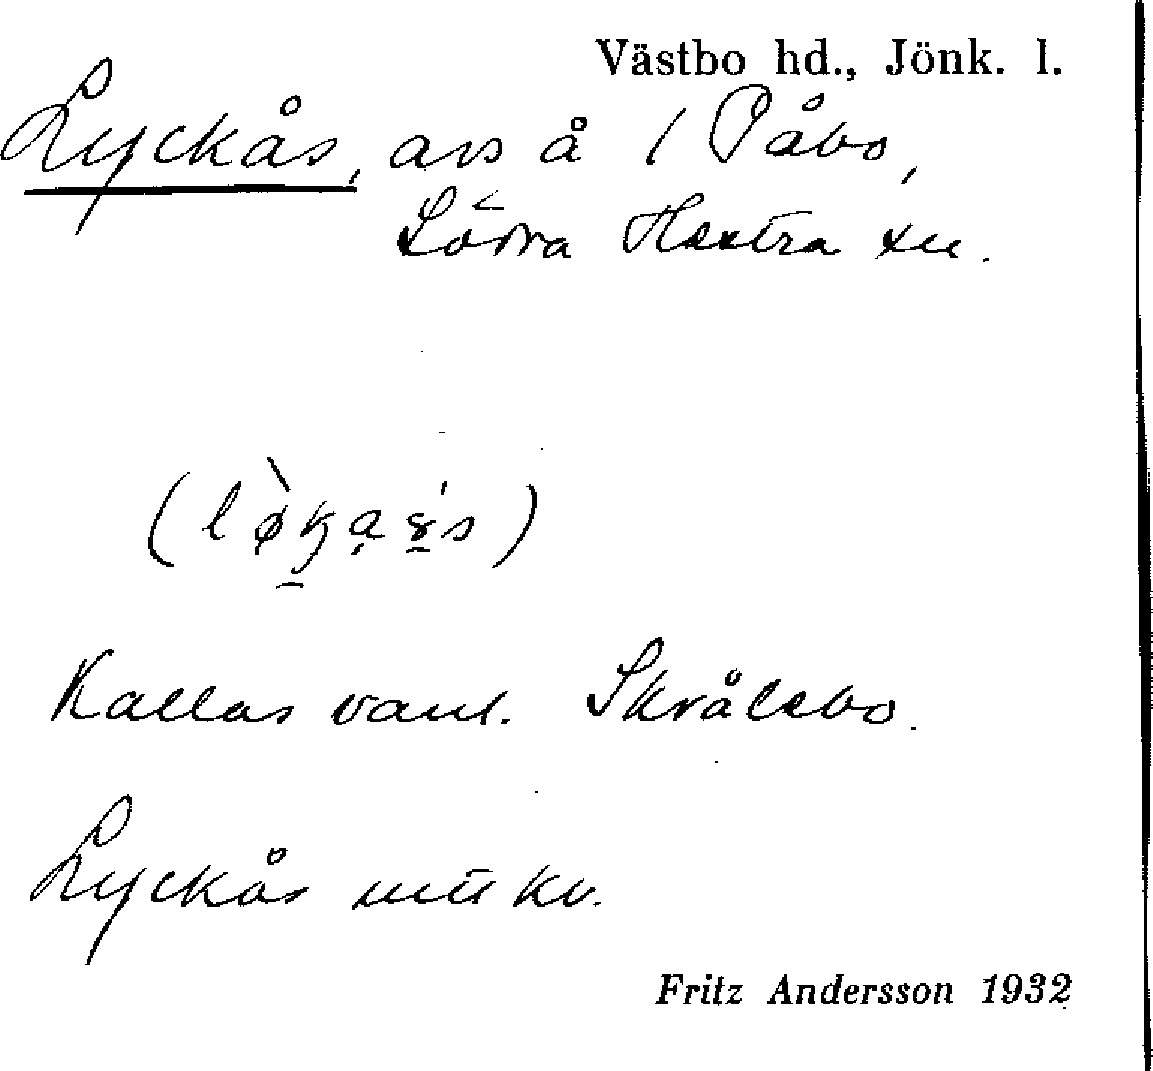 Västbo hd., Jönk. l.
Lyckås, avs å 1 Påbo,
Södra Hestra sn.
Kallas vanl. Skrålebo.
Lyckås mtl kv.
Fritz Andersson 1932